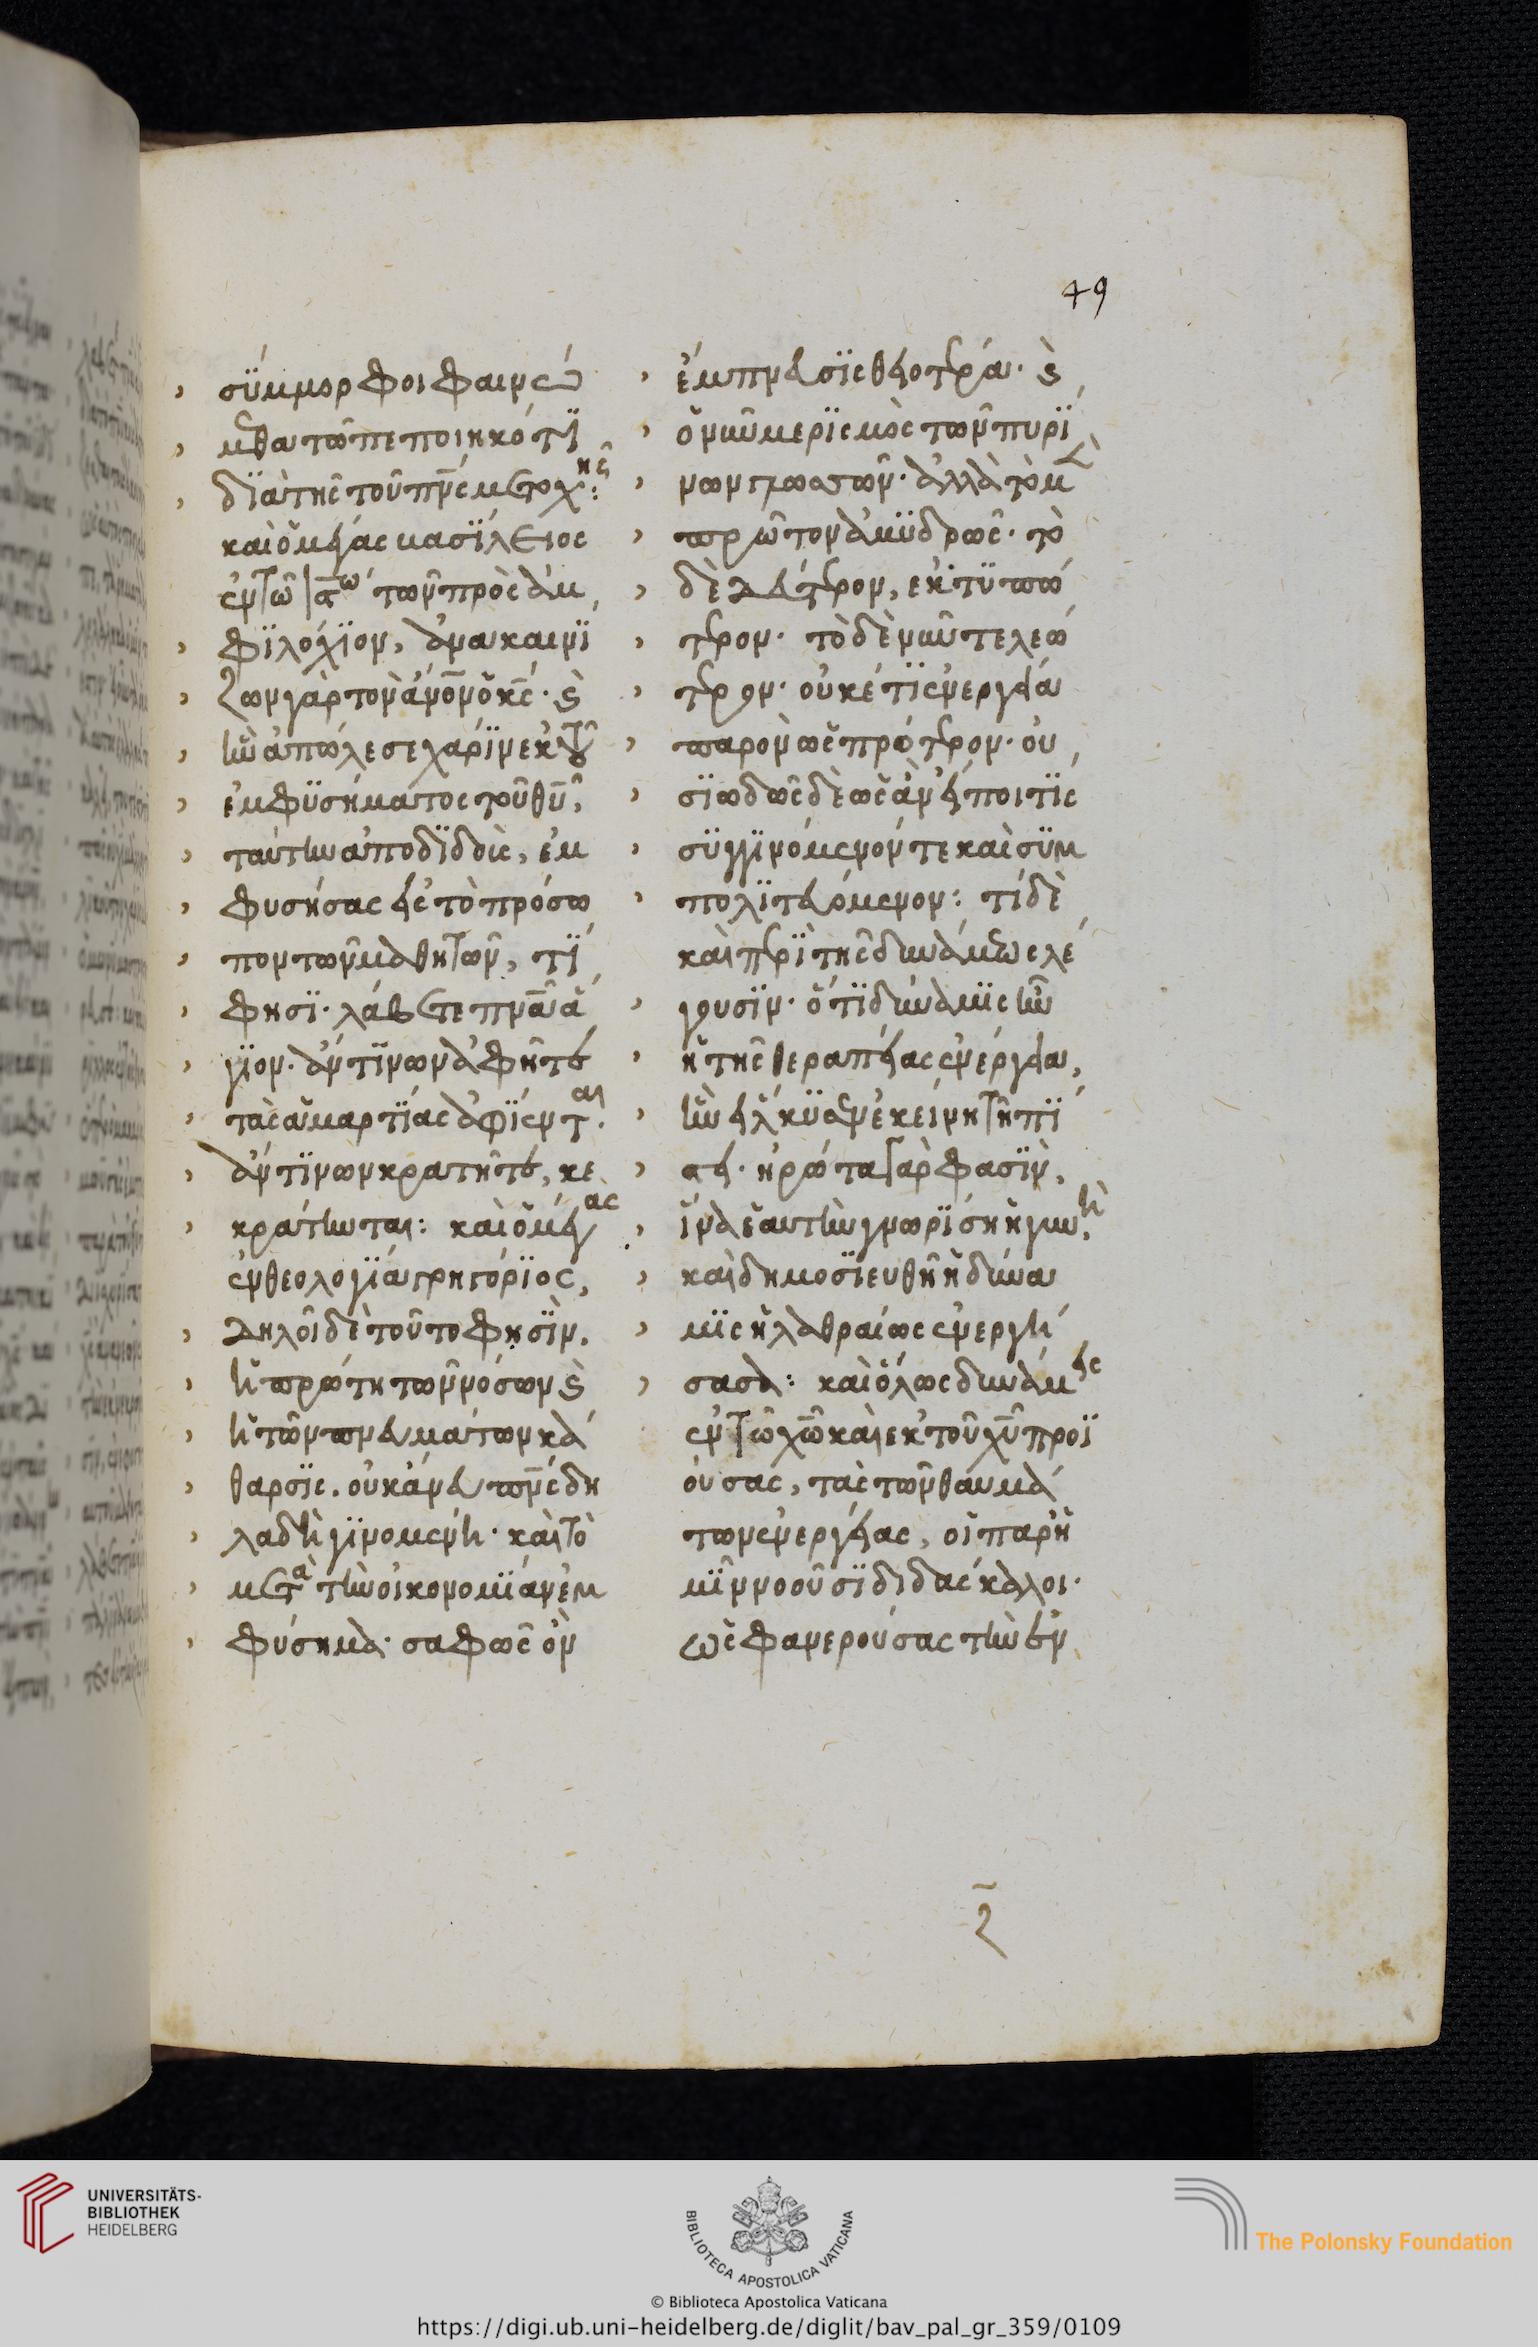 49
σύμμορφοι φαινώ
μεθα τῶ πεποιηκότι
διὰ τῆς τοῦ πνς μετοχῆς:
καὶ ὁ μέγας βασίλειος
ἐν τῶ α τῶν πρὸς ἀμ
φιλόχιον, ἀνακαινί
ζων γὰρ τὸν ἄνον ὁ κς· καὶ
ἣν ἀπώλεσε χάριν ἐκ τοῦ
ἐμφυσήματος τοῦ θυ,
ταύτην ἀποδιδοὺς, ἐμ
φυσήσας εἰς τὸ πρόσω
πον τῶν μαθητῶν, τί
φησι· λάβετε πνα ἅ
γιον· ἄν τινων ἀφῆτε
τὰς ἁμαρτίας ἀφίενται·
ἄν τινων κρατῆτε, κε
κράτηνται: καὶ ὁ μέγας
ἐν θεολογία γρηγόριος,
δηλοῖ δὲ τοῦτο φησὶν,
ἡ πρώτη τῶν νόσων καὶ
ἡ τῶν πνευμάτων κά
θαρσις, οὐκ ἄνευ πνς δη
λαδὴ γινομένη· καὶ τὸ
μετὰ τὴν οἰκονομίαν ἐμ
φύσημα· σαφῶς ὂν
ἔμπνευσις θειοτέρα· καὶ
ὁ νῦν μερισμὸς τῶν πυρί
νων γλωσσῶν· ἀλλὰ τὸ μὲν
πρῶτον ἀμυδρῶς· τὸ
δὲ δεύτερον, ἐκτυπώ
τερον· τὸ δὲ νῦν τελεώ
τερον· οὐκέτι ἐνεργεία
παρὸν ὡς πρότερον· οὐ
σιωδῶς δὲ ὡς ἂν εἴποι τις
συγγινόμενόν τε καὶ συμ
πολιτευόμενον: τί δὲ
καὶ περὶ τῆς δυνάμεως λέ
γουσιν· ὅτι δύναμις ἦν
ἡ τῆς θεραπείας ἐνέργεια,
ἣν εἵλκυσεν ἐκείνη τῆ πί
στει· ἠρώτα γὰρ φασὶν,
ἵνα ἑαυτὴν γνωρίση ἡ γυνὴ,
καὶ δημοσιευθῆ ἡ δύνα
μις ἡ λαθραίως ἐνεργή
σασα: καὶ ὅλως δυνάμεις
ἐν τῶ χω καὶ ἐκ τοῦ χυ προϊ
ούσας, τὰς τῶν θαυμά
των ἐνεργείας, οἱ παρ' ἡ
μῖν νοοῦσι διδάσκαλοι·
ὡς φανερούσας τὴν ἐν
ζ
UNIVERSITÄTS-
BIBLIOTHEK
HEIDELBERG
BIBLIOTECA APOSTOLICA VATICANA
The Polonsky Foundation
© Biblioteca Apostolica Vaticana
https://digi.ub.uni-heidelberg.de/diglit/bav_pal_gr_359/0109